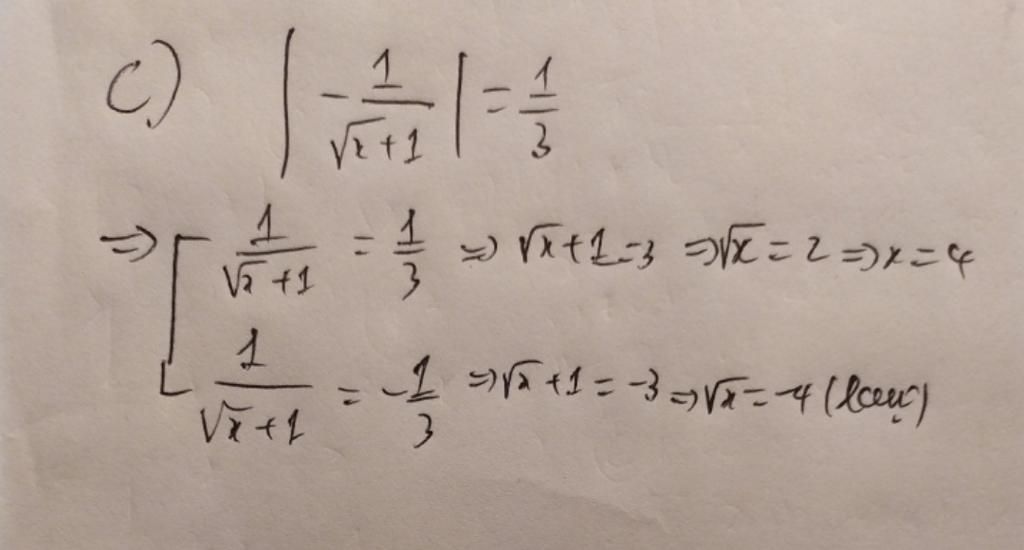 c) |-1/(√x+1)| = 1/3
=> [ 1/(√x+1) = 1/3 => √x+1=3 => √x = 2 => x = 4
1/(√x+1) = -1/3 => √x+1 = -3 => √x = -4 (loại)